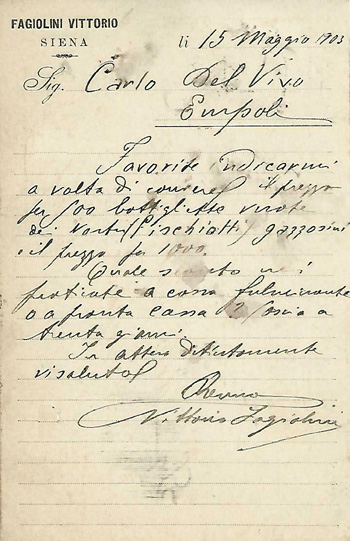 FAGIOLINI VITTORIO
SIENA
li 15 Maggio 1903
Sig. Carlo Del Vivo
Empoli
Favorite indicarmi
a volta di corriere il prezzo
per 500 bottigliette vuote
dei vostri (Fischiotti) gazzosini
e il prezzo per 1000.
Quale sconto mi
praticate a cassa fulminante
o a pronta cassa? Ossia a
trenta giorni.
In attesa distintamente
vi saluto
Vittorio Fagiolini